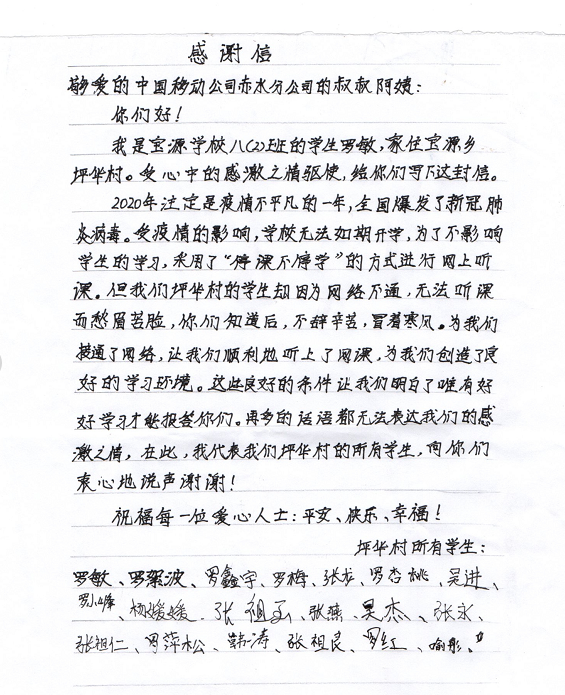 感谢信
敬爱的中国移动公司赤水分公司的叔叔阿姨：
你们好！
我是宝源学校八(2)班的学生罗敏，家住宝源乡
坪华村。受心中的感激之情驱使，给你们写下这封信。
2020年注定是疫情不平凡的一年，全国爆发了新冠肺
炎病毒。受疫情的影响，学校无法如期开学，为了不影响
学生的学习，采用了“停课不停学”的方式进行网上听
课。但我们坪华村的学生却因为网络不通，无法听课
而愁眉苦脸，你们知道后，不辞辛苦，冒着寒风。为我们
接通了网络，让我们顺利地听上了网课，为我们创造了良
好的学习环境。这些良好的条件让我们明白了唯有好
好学习才能报答你们。再多的话语都无法表达我们的感
激之情，在此，我代表我们坪华村的所有学生，向你们
衷心地说声谢谢！
祝福每一位爱心人士：平安、快乐、幸福！
坪华村所有学生：
罗敏、罗梁波、罗鑫宇、罗梅、张龙、罗杏桃、吴进、
罗小峰、杨媛媛、张祖、张燕、吴杰、张永、
张祖仁、罗萍松、韩涛、张祖良、罗红、喻彤、